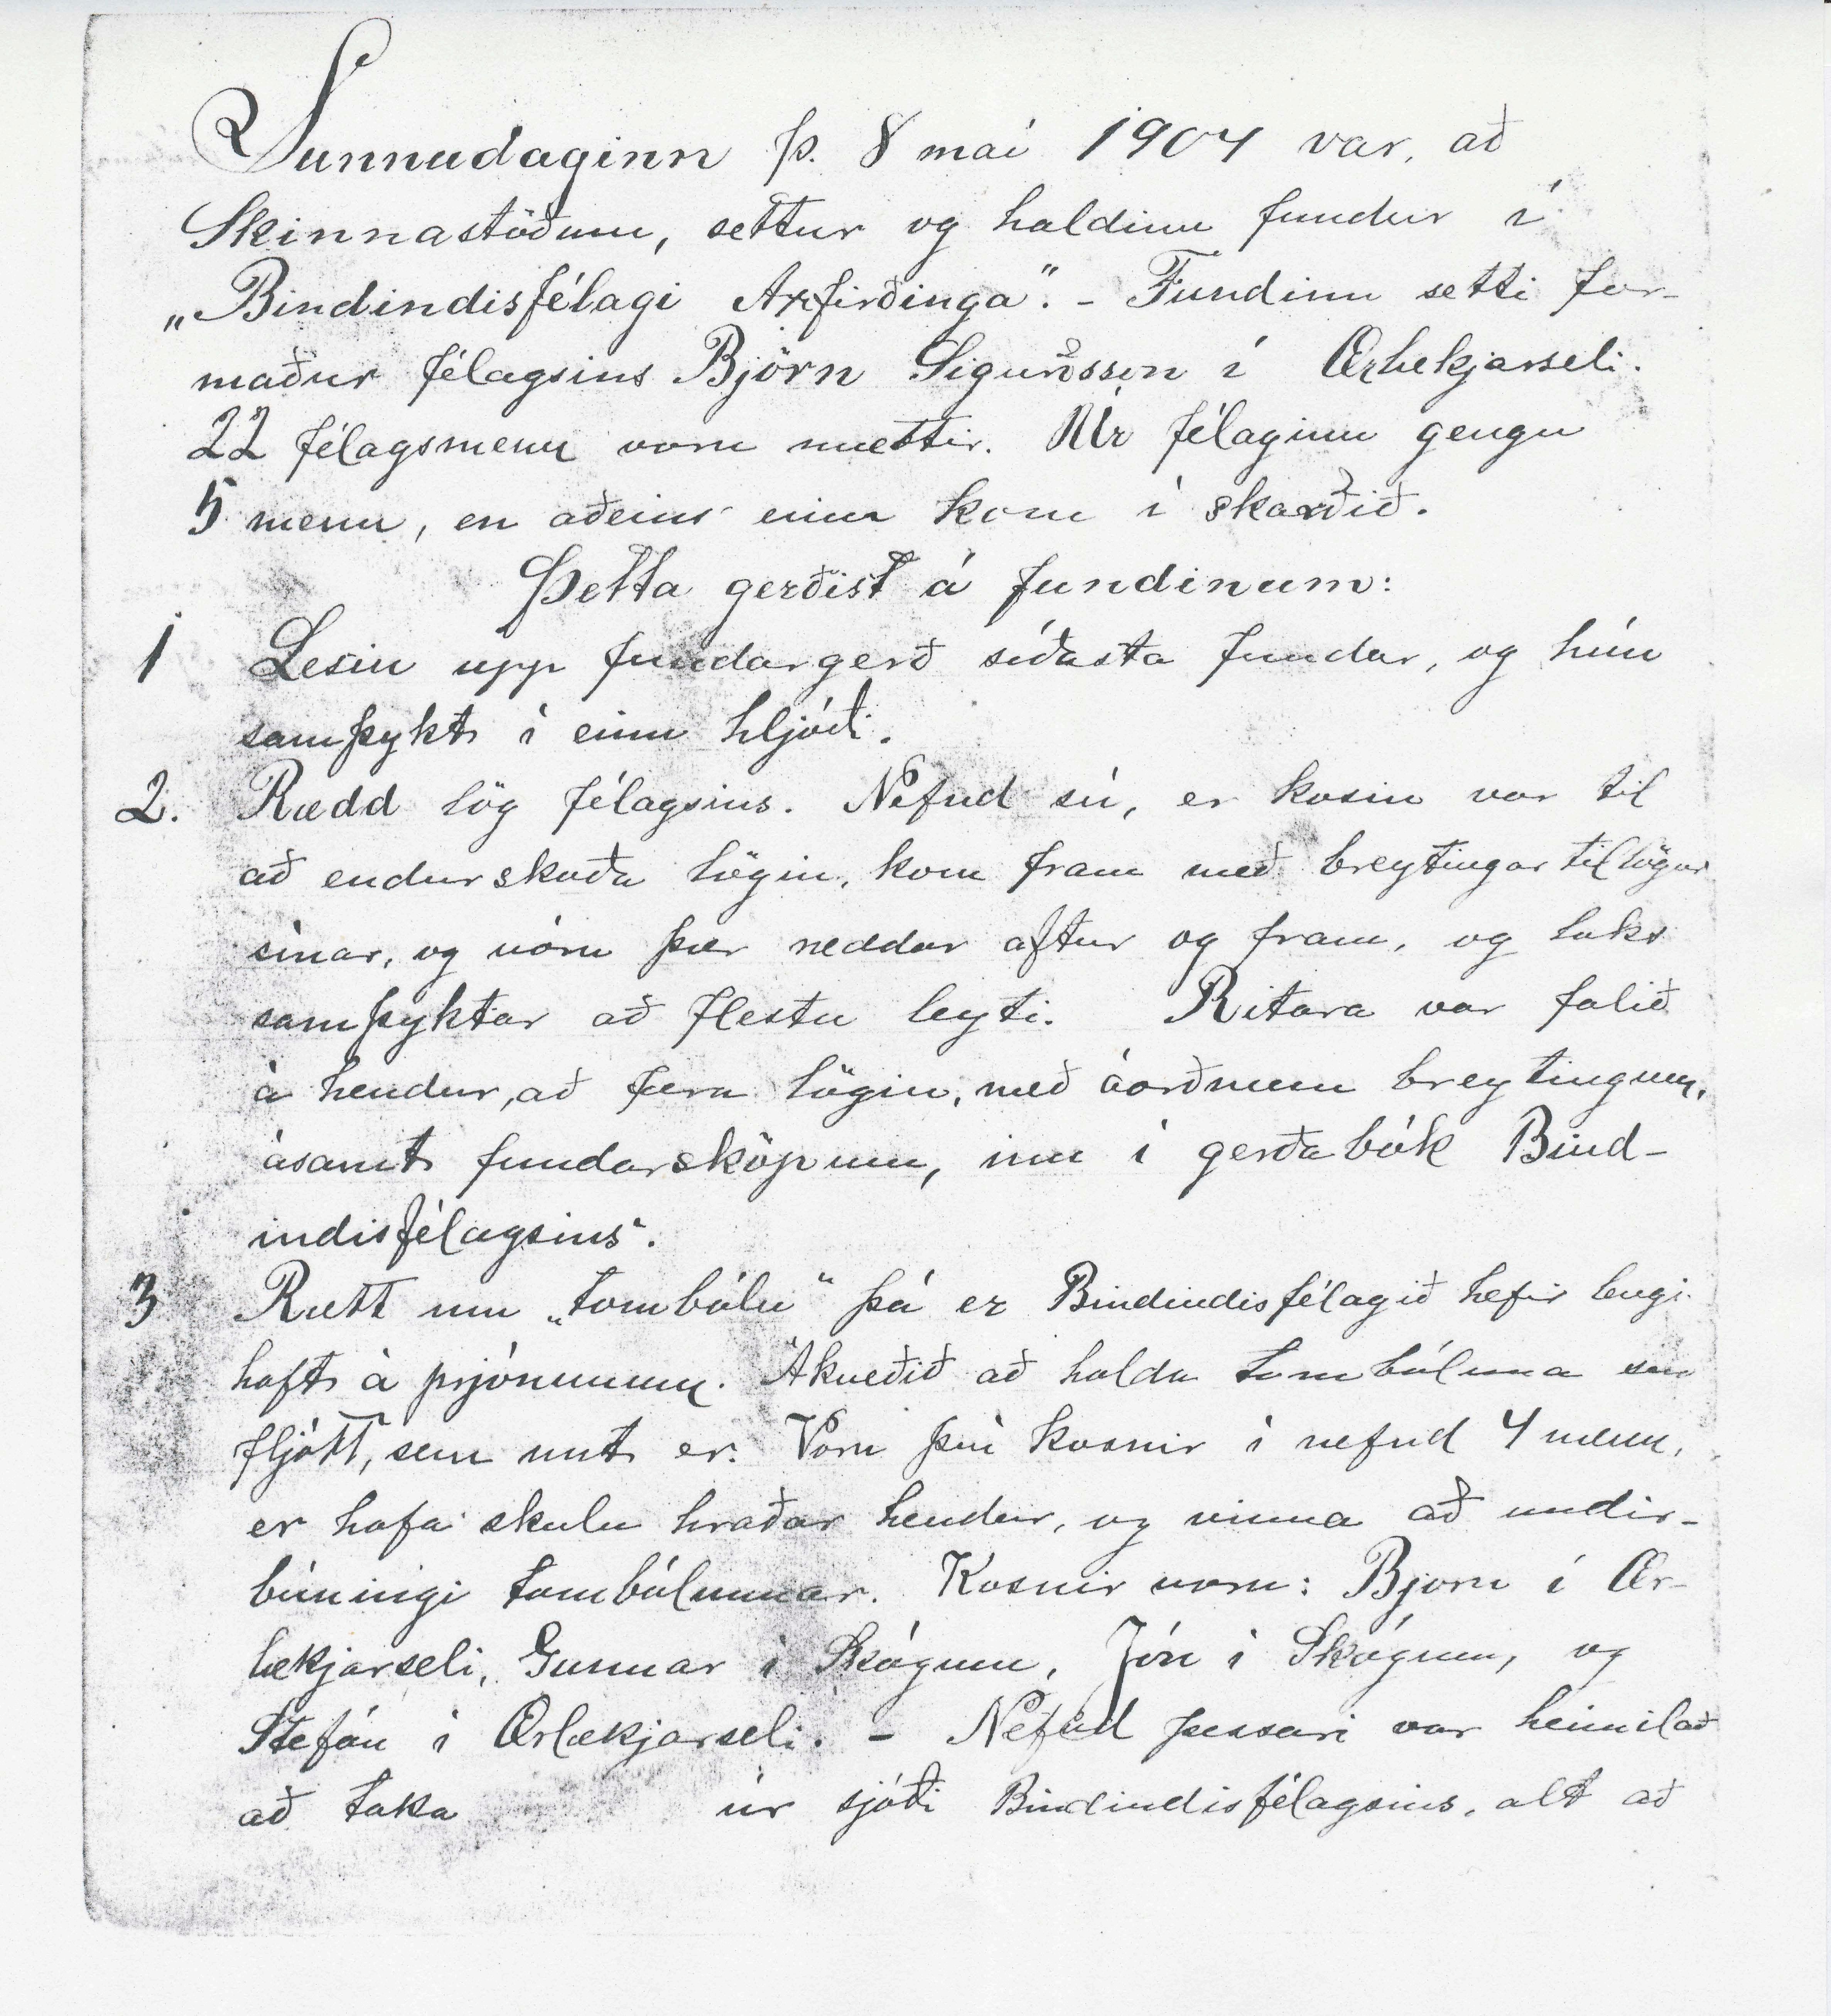 Sunnudaginn þ. 8 maí 1904 var, að
Skinnastöðum, settur og haldinn fundur í
„Bindindisfélagi Axfirðinga“. - Fundinn setti for-
maður félagsins Björn Sigurðsson í Ærlækjarseli.
22 félagsmenn voru mættir. Úr félaginu gengu
5 menn, en aðeins einn kom í skarðið.
Þetta gerðist á fundinum:
1 Lesin upp fundargerð síðasta fundar, og hún
samþykt í einu hljóði.
2. Rædd lög félagsins. Nefnd sú, er kosin var til
að endurskoða lögin, kom fram með breytingar tillögur
sínar, og vóru þær ræddar aftur og fram, og loks
samþyktar að flestu leyti. Ritara var falið
á hendur, að færa lögin, með áorðnum breytingum,
ásamt fundarsköpum, inn í gerðabók Bind-
indisfélagsins“.
3 Rætt um „tombólu“ þá er Bindindisfélagið hefir lengi
haft á prjónunum. Ákveðið að halda tombóluna svo
fljótt, sem unt er. Voru því kosnir í nefnd 4 menn,
er hafa skulu hraðar hendur, og vinna að undir-
búningi tombólunnar. Kosnir voru: Björn í Ær-
lækjarseli, Gunnar í Skógum, Jón í Skógum, og
Stefán í Ærlækjarseli. - Nefnd þessari var heimilað
að taka úr sjóði Bindindisfélagsins, alt að